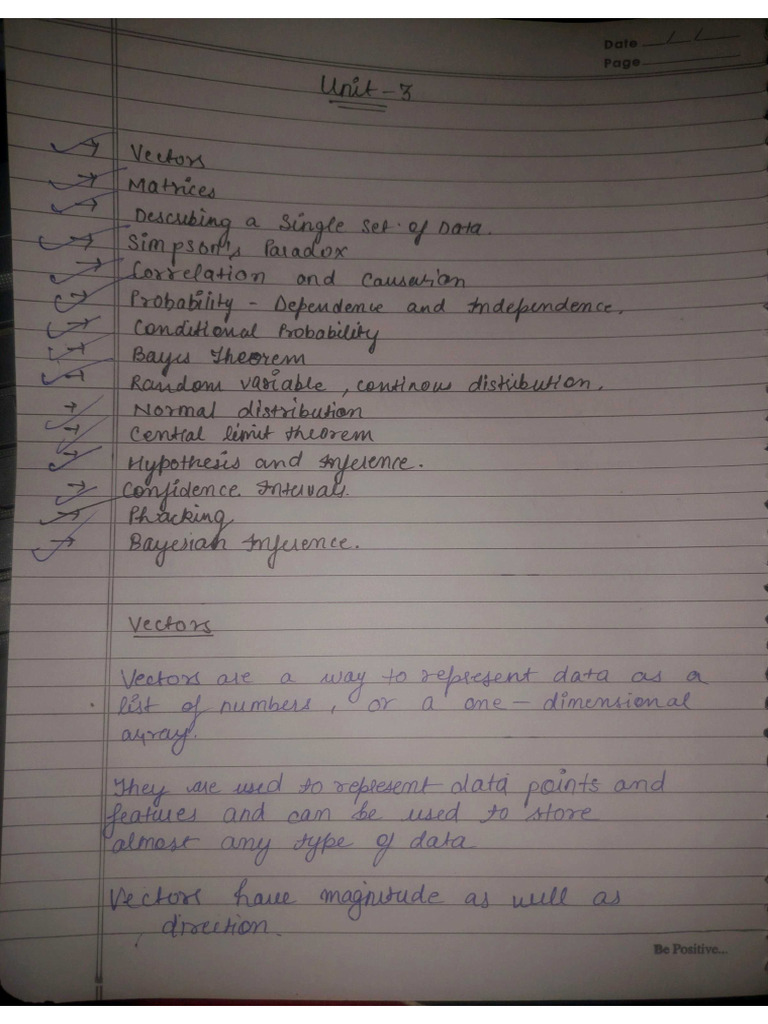 Date / /
Page
Unit - 3
→ Vectors
→ Matrices
→ Describing a Single Set of Data.
→ Simpson's Paradox
→ Correlation and Causation
→ Probability - Dependence and Independence.
→ Conditional Probability
→ Bayes Theorem
→ Random variable, continous distribution.
→ Normal distribution
→ Central limit theorem
→ Hypothesis and Inference.
→ Confidence Intervals.
→ Phacking
→ Bayesian Inference.
Vectors
Vectors are a way to represent data as a
list of numbers, or a one - dimensional
array.
They are used to represent data points and
features and can be used to store
almost any type of data
Vectors have magnitude as well as
direction.
Be Positive...